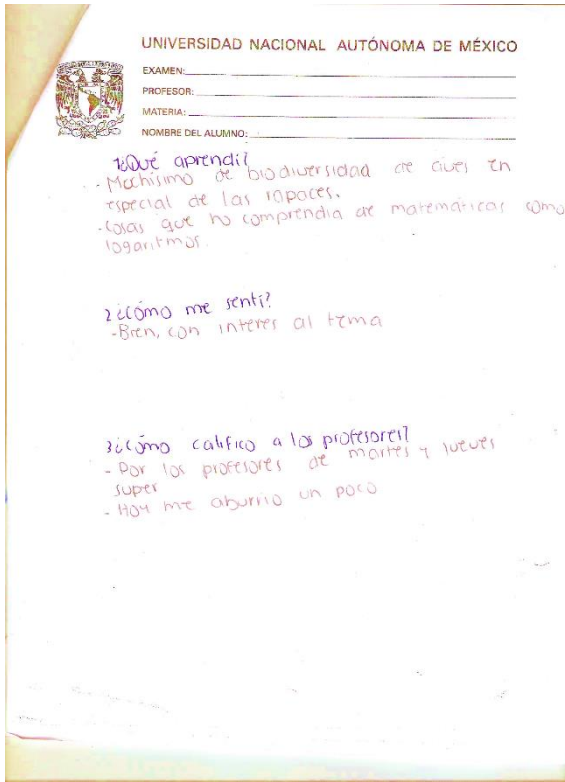 UNIVERSIDAD NACIONAL AUTÓNOMA DE MÉXICO
EXAMEN:
PROFESOR:
MATERIA:
NOMBRE DEL ALUMNO:
1¿Qué aprendí?
- Muchisimo de biodiversidad de aves en
especial de las rapaces.
- Cosas que no comprendia de matemáticas como
logaritmos.
2¿Cómo me sentí?
- Bien, con interes al tema
3¿Cómo califico a los profesores?
- Por los profesores de martes y jueves
super
- Hoy me aburrio un poco